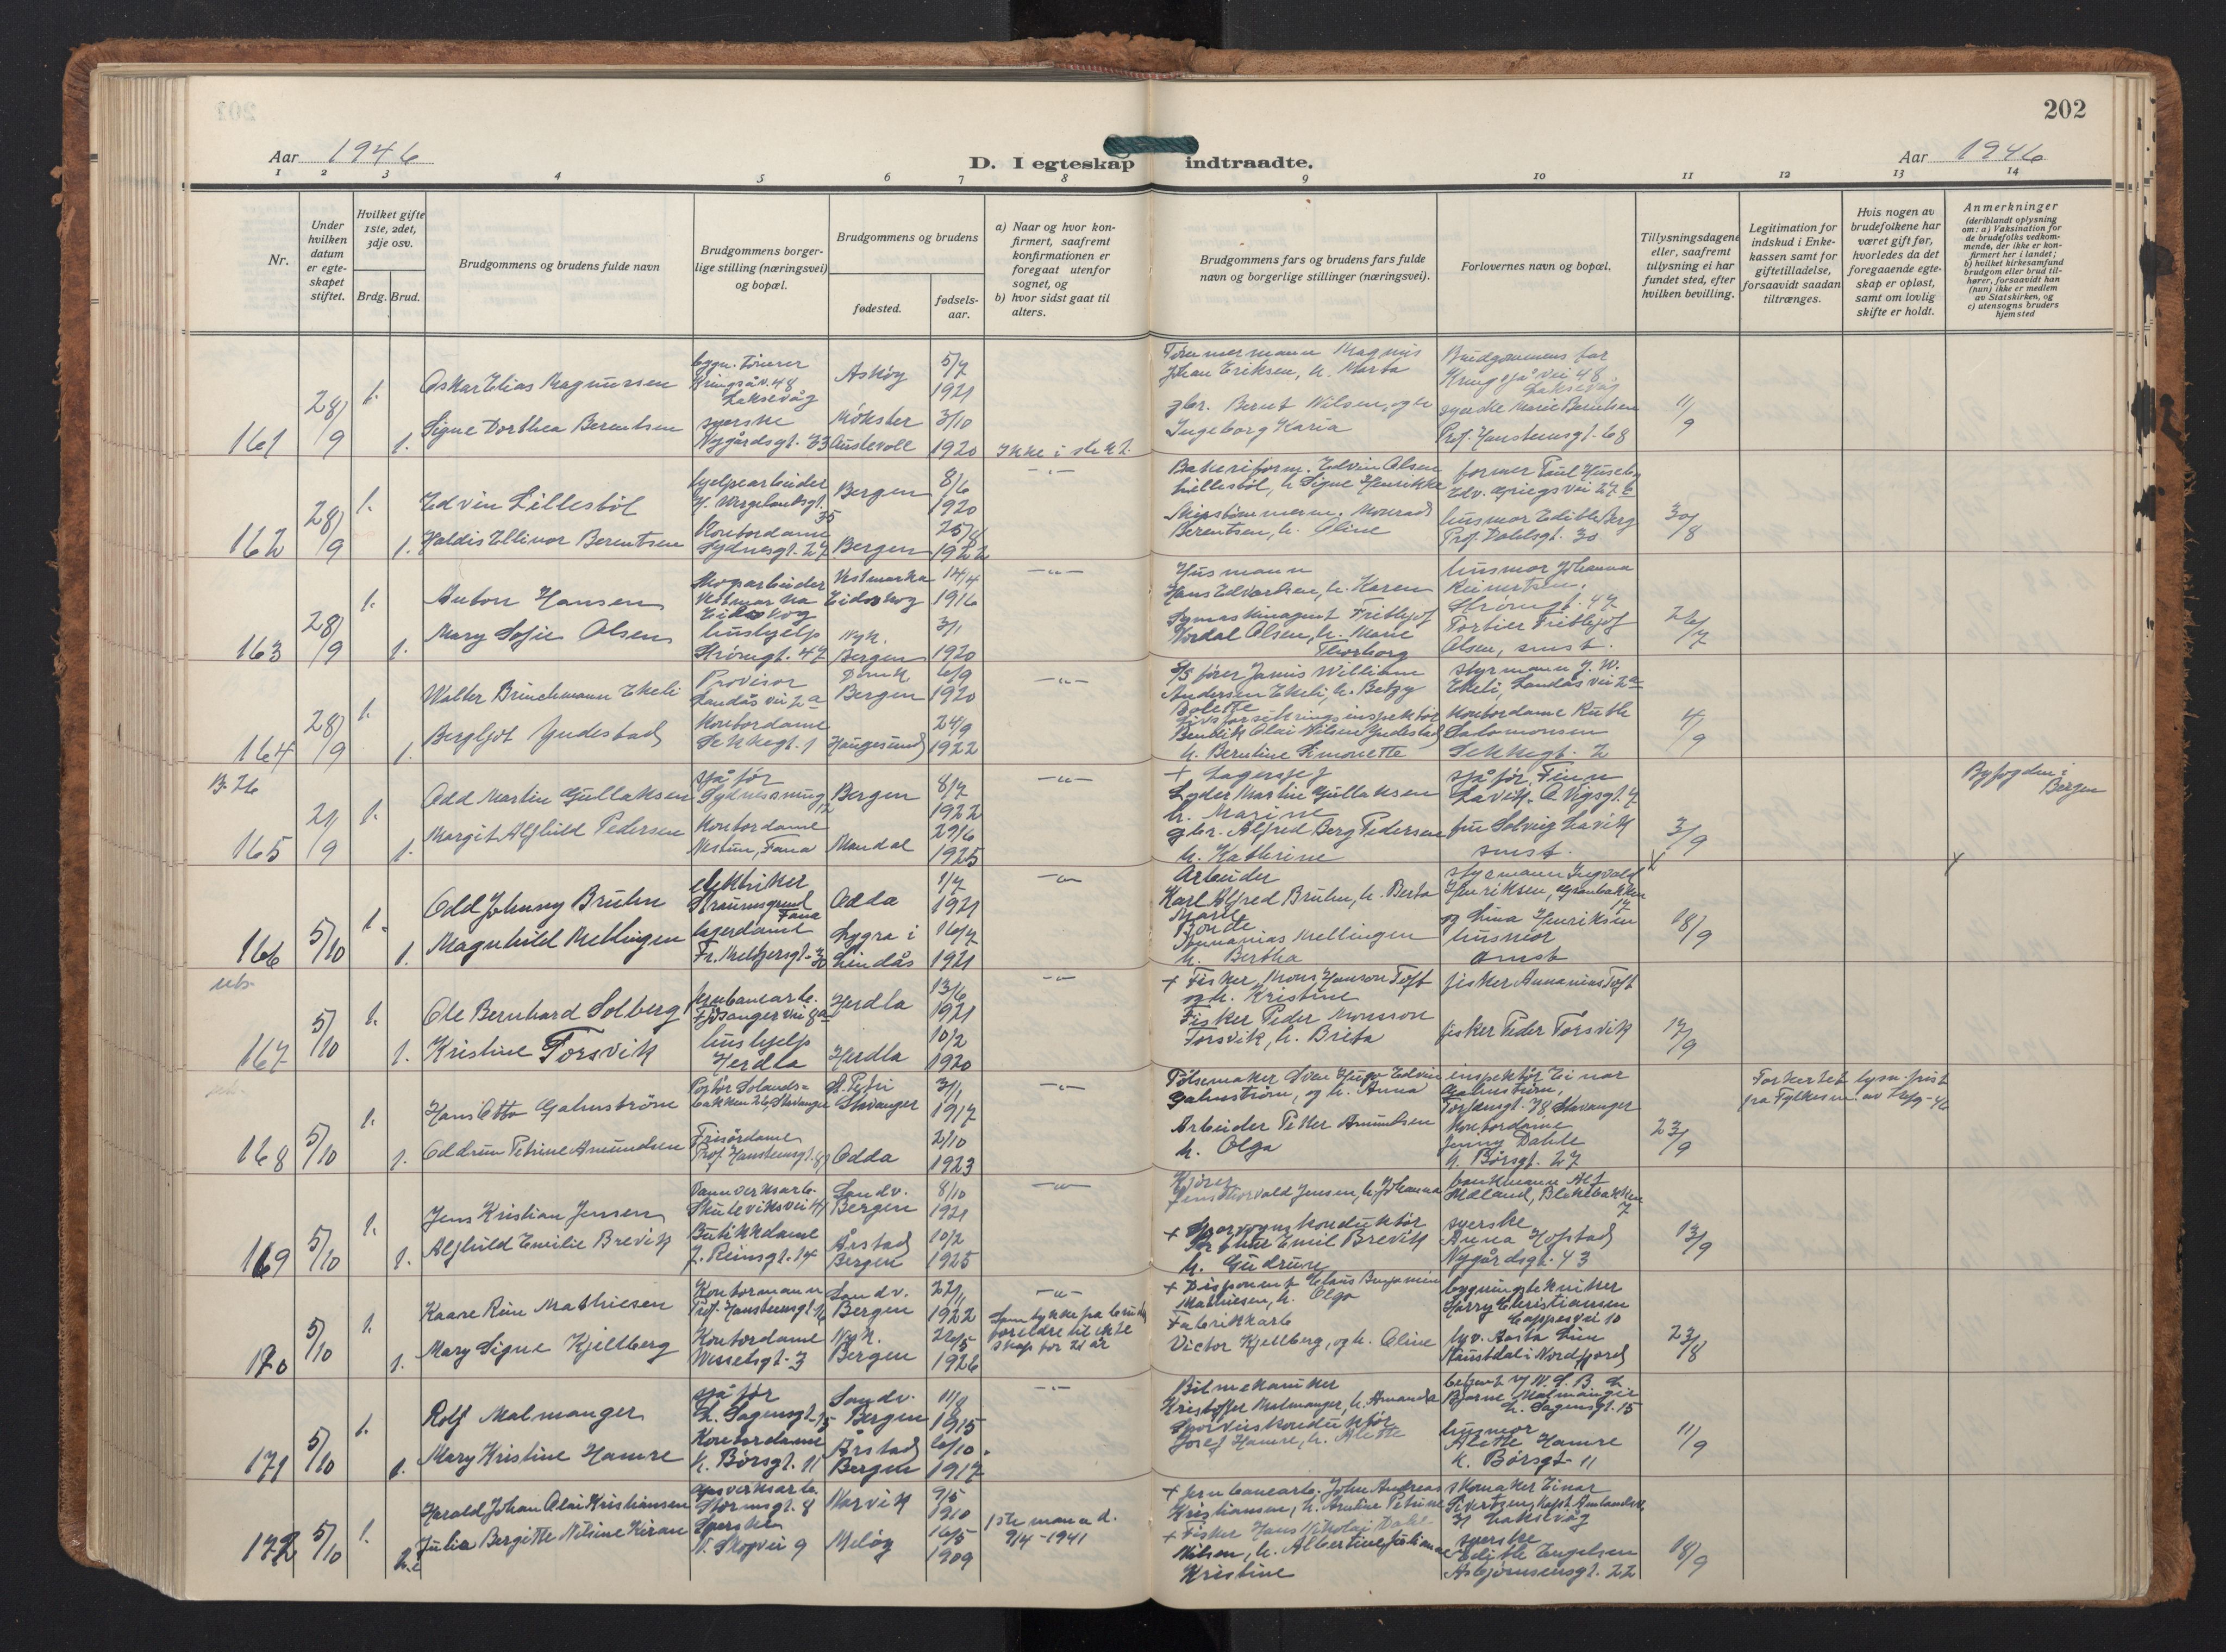 202
Aar 1946
D. I egteskap indtraadte.
Aar 1946
1 2 3 4 5 6 7 8 9 10 11 12 13 14
Nr.
Under hvilken datum er egteskapet stiftet.
Hvilket gifte 1ste, 2det, 3dje osv.
Brdg. Brud.
Brudgommens og brudens fulde navn
Brudgommens borgerlige stilling (næringsvei) og bopæl.
Brudgommens og brudens
fødested.
fødselsaar.
a) Naar og hvor konfirmert, saafremt konfirmationen er foregaat utenfor sognet, og
b) hvor sidst gaat til alters.
Brudgommens fars og brudens fars fulde navn og borgerlige stillinger (næringsvei).
Forlovernes navn og bopæl.
Tillysningsdagene eller, saafremt tillysning ei har fundet sted, efter hvilken bevilling.
Legitimation for indskud i Enkekassen samt for giftetilladelse, forsaavidt saadan tiltrænges.
Hvis nogen av brudefolkene har været gift før, hvorledes da det foregaaende egteskap er opløst, samt om lovlig skifte er holdt.
Anmerkninger (deriblandt oplysning om: a) Vaksination for de brudefolks vedkommende, der ikke er konfirmert her i landet; b) hvilket kirkesamfund brudgom eller brud tilhører, forsaavidt han (hun) ikke er medlem av Statskirken, og c) utensogns bruders hjemsted
161 28/9 1. Oskar Elias Magnussen
Kringsjåv. 48 Laksevåg
Askøy 5/7 1921
Tømmermann Magnus Johan Eriksen, h. Marta
Brudgommens far Kringsjå vei 48 Laksevåg
1. Signe Dorthea Berentsen
syerske Nygårdsgt. 33
Møkster Austevoll 3/10 1920
Ikke i slekt.
gbr. Bernt Nilsen, og h Ingeborg Karia
syerske Marie Berntsen Prof. Hansteensgt. 68
11/9
162 28/9 1. Edvin Lillestöl
hjelpearbeider H. Wergelandsgt. 35
Bergen 8/6 1920
-"-
Bakeriform. Edvin Olsen Lillestöl, h Signe Henrikke
former Paul Huseby Edv. Griegs vei 27 c
1. Haldis Ellinor Berentsen
Kontordame Sydnesgt. 27
Bergen 25/8 1922
Skipstömmerm. Monrad Berentsen, h. Oline
husmor Edith Berg Prof. Dahlsgt. 30
30/8
163 28/9 1. Anton Hansen
Skogsarbeider Vestmarka Eidskog
Vestmarka Eidskog 14/4 1916
-"-
Husmann Hans Edvardsen, h. Karen
husmor Johanna Reinertsen, Strömgt. 47
1. Mary Sofie Olsen
hushjelp Strömgt. 47
Nyk. Bergen 3/1 1920
Symaskinagent Frithjof Nordal Olsen, h. Marie Thorborg
Portier Frithjof Olsen, smst.
26/7
164 28/9 1. Walter Brinchmann Ekeli
Provisor Landås vei 2a
Domk Bergen 6/9 1920
-"-
S/S fører Jamis William Andersen Ekeli, h. Betzy Bolette
styrmann J. W. Ekeli, Landås vei 2a
1. Bergljot Gudestad
Kontordame Sekkegt. 1
Haugesund 24/9 1922
Livsforsikringsinspektör Bendik Olai Nilsen Gudestad h. Berntine Simonette
Kontordame Ruth Salomonsen Sekkegt. 2
4/9
B. 76
165 21/9 1. Odd Martin Gullaksen
sjåför Sydnessmug 12
Bergen 8/7 1922
-"-
+ Lagersjef Lyder Martin Gullaksen h. Marine
sjåför Finn Lavik O. Vigsgt. 7
Byfogden i Bergen
1. Margit Alfhild Pedersen
Kontordame Nestun, Fana
Mandal 29/6 1925
gbr. Alfred Berg Pedersen h. Kathrine
fru Solveig Lavik smst.
3/9
166 5/10 1. Odd Johnny Bruhn
elektriker Straumsgrend Fana
Odda 1/7 1921
-"-
Arbeider Karl Alfred Bruhn, h. Berta Marie
styrmann Ingvald Henriksen, Granbakken 17
1. Magnhild Mellingen
lagerdame Fr. Meltzersgt. 30
Lygra i Lindås 16/7 1921
Bonde Annanias Mellingen h. Bertha
og Lina Henriksen husmor smst
18/9
167 5/10 1. Ole Bernhard Solberg
jernbanearb. Fjösangervei 8a
Herdla 13/6 1921
-"-
+ Fisker Mons Hanson Toft og h. Kristine
fisker Annanias Toft
1. Kristine Forsvik
hushjelp Herdla
Herdla 10/2 1920
Fisker Peder Monsson Forsvik, h. Brita
fisker Peder Forsvik
17/9
168 5/10 1. Hans Otto Galmström
Portör Solandsbakken 26, Stavanger
St. Petri Stavanger 3/1 1917
-"-
Pölsemaker Sven Hugo Edvin Galmström, og h. Anna
inspektör Einar Galmström, 78 Stavanger
Forkortet lysn. frist fra Fylkesm. av
1. Oddrun Petrine Amundsen
Frisördame Prof. Hansteensgt. 8
Odda 2/10 1923
Arbeider Petter Amundsen h. Olga
Kontordame Jenny Dahle h. Börsgt. 27
23/9
169 5/10 1. Jens Kristian Jensen
Vannverksarb. Skuteviksvei 41
Sandv. Bergen 8/10 1921
-"-
Kjörer Jens Thorvald Jensen, h. Johanna
bankmann Alf Mæland, Blekebakken 7
1. Alfhild Emilie Brevik
Butikkdame J. Reinsgt. 14
Årstad Bergen 10/2 1925
+ Sporvognskonduktör Emil Brevik h. Gudrun
syerske Anna Hofstad Nygårdsgt. 43
13/9
170 5/10 1. Kaare Rein Mathiesen
Kontormann Prof. Hansteensgt. 16
Sandv. Bergen 22/11 1922
-"-
+ Disponent Claus Benjamin Mathiesen, h. Olga
bygningstekniker Harry Christiansen Cappesvei 10
1. Mary Signe Kjellberg
Kontordame Wesselsgt. 3
Nyk. Bergen 26/5 1926
Samtykke fra brudens foreldre til ekteskap för 21 år
Fabrikkarb Victor Kjellberg, og h. Oline
Aasta Lun Staustdal i Nordfjord
23/8
171 5/10 1. Rolf Malmanger
sjåför L. Sagensgt. 15
Sandv. Bergen 11/8 1915
-"-
Bilmekaniker Kristoffer Malmanger, h. Amanda
betjent v/ N.S.B. Bjarne Malmanger L. Sagensgt. 15
1. Mary Kristine Hamre
Kontordame h. Börsgt. 11
Årstad Bergen 6/10 1917
Sporveiskonduktör Josef Hamre, h. Alette
husmor Alette Hamre h. Börsgt 11
11/9
172 5/10 1. Harald Johan Olai Kristiansen
Gassverksarb. Stormsgt. 8
Narvik 9/5 1910
+ jernbanearb. John Andreas Kristiansen, h. Arntine Petrine
skomaker Einar Sivertsen, Laksevåg
2. Julia Bergitte Nilsine Kiran
Syerske N. Skogvei 9
Melöy 16/5 1909
1ste mann d. 9/4-1941
+ Fisker Hans Nikolai Dahl Nilsen, h. Albertine Juliane Kristine
syerske Edith Engelsen Asbjörnsensgt. 22
18/9